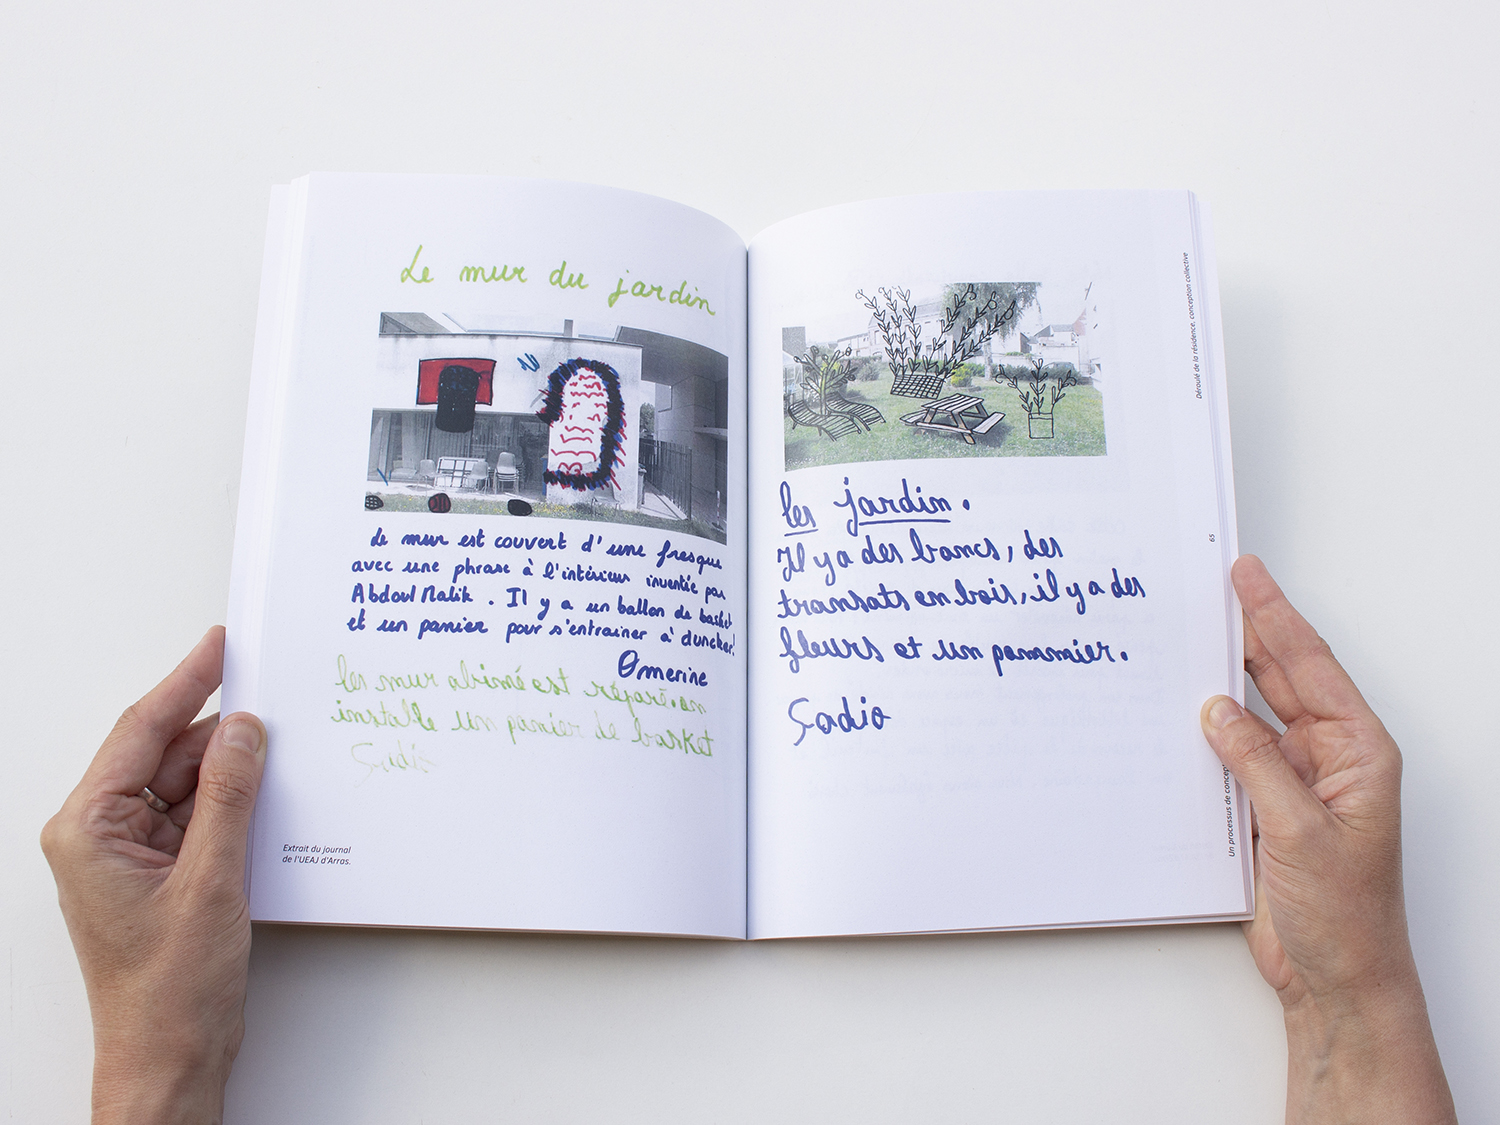 Le mur du jardin
Le mur est couvert d'une fresque
avec une phrase à l'intérieur inventée par
Abdoul Malik . Il y a un ballon de basket
et un panier pour s'entrainer à duncker!
Omerine
les mur abimé est réparé. on
installe un panier de basket
Sadio
Extrait du journal
de l'UEAJ d'Arras.
les jardin.
Il y a des bancs, des
transats en bois, il y a des
fleurs et un pommier.
Sadio
Déroulé de la résidence, conception collective
65
Un processus de concept